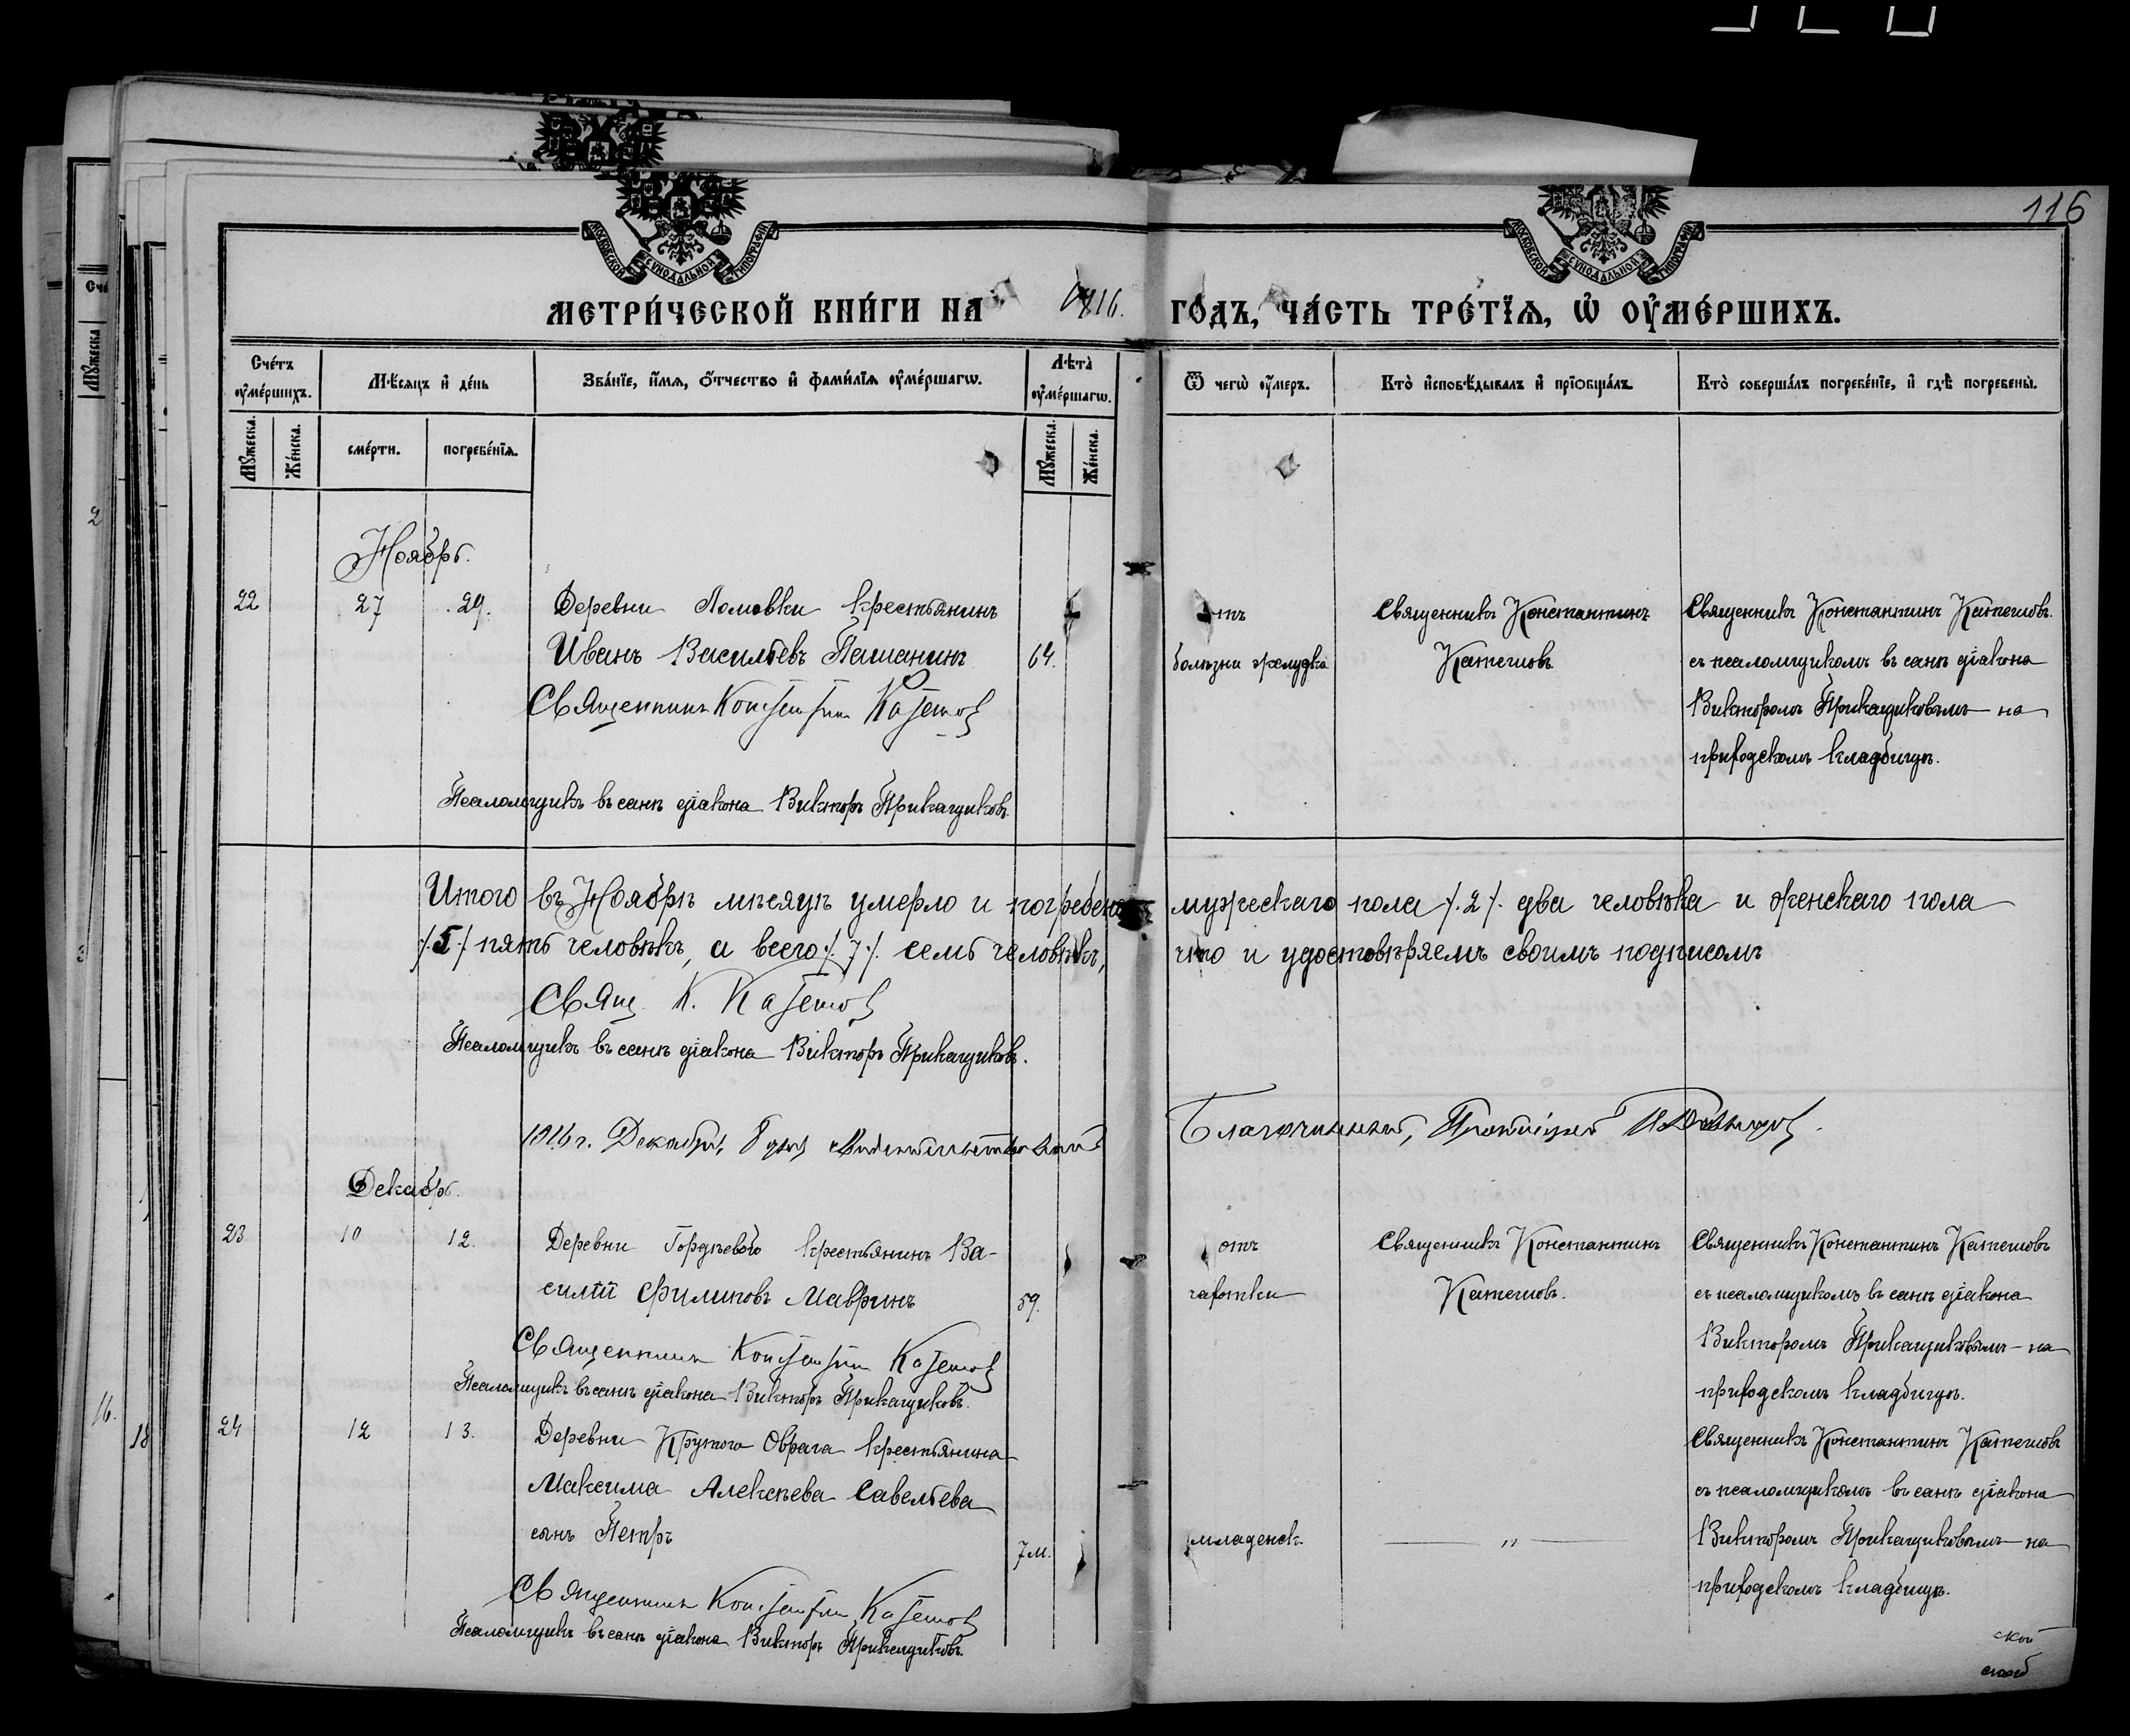 116
МОСКОВСКОЙ СУНОДАЛЬНОЙ ТИПОГРАФІИ
МОСКОВСКОЙ СУНОДАЛЬНОЙ ТИПОГРАФІИ
МЕТРИ́ЧЕСКОЙ КНИ́ГИ НА 1916. ГО́ДЪ, ЧА́СТЬ ТРЕ́ТЇѦ, Ѡ҆ ОУ҆МЕ́РШИХЪ.
Сче́тъ оу҆ме́ршихъ.
Мꙋ́жеска.
Же́нска.
Мѣ́сяцъ и҆ де́нь
сме́рти.
погребе́нїѧ.
Зва́нїе, и҆́мѧ, ѻ҆́тчество и҆ фами́лїѧ оу҆ме́ршагѡ.
Лѣ́та̀ оу҆ме́ршагѡ.
Мꙋ́жеска.
Же́нска.
Ѿ чегѡ̀ оу҆́меръ.
Кто̀ и҆сповѣ́дывалъ и҆ прїѡбща́лъ.
Кто̀ соверша́лъ погребе́нїе, и҆ гдѣ̀ погребены̀.
Ноябрь.
22 27 29. Деревни Ломовки крестьянинъ
Иванъ Васильевъ Пашанинъ 64.
Священникъ Константинъ Катешов
Псаломщикъ въ санѣ діакона Викторъ Прикащиковъ.
отъ
болѣзни желудка
Священникъ Константинъ
Катешовъ
Священникъ Константинъ Катешовъ
съ псаломщикомъ въ санѣ діакона
Викторомъ Прикащиковымъ на
приходскомъ кладбищѣ.
Итого въ Ноябрѣ мѣсяцѣ умерло и погребено мужескаго пола /.2/. два человѣка и женскаго пола
/.5/ пять человѣкъ, а всего /.7/. семь человѣкъ, что и удостовѣряемъ своимъ подписомъ
Свящ. К. Катешов
Псаломщикъ въ санѣ діакона Викторъ Прикащиковъ.
1916 г. Декабря, 8 дня Благочинный, Протоіерей
Декабрь.
23 10 12. Деревни Гордѣевой крестьянинъ Ва-
силій Филиповъ Мавринъ 59.
Священникъ Константинъ Катешов
Псаломщикъ въ санѣ діакона Викторъ Прикащиковъ.
отъ
чахотки
Священникъ Константинъ
Катешовъ.
Священникъ Константинъ Катешовъ
съ псаломщикомъ въ санѣ діакона
Викторомъ Прикащиковымъ на
приходскомъ кладбищѣ.
24 12 13. Деревни Крутого Оврага крестьянина
Максима Алексѣева Савельева
сынъ Петръ 7 м.
Священникъ Константинъ Катешов
Псаломщикъ въ санѣ діакона Викторъ Прикащиковъ.
младенск.
"
Священникъ Константинъ Катешовъ
съ псаломщикомъ въ санѣ діакона
Викторомъ Прикащиковымъ на
приходскомъ кладбищѣ.